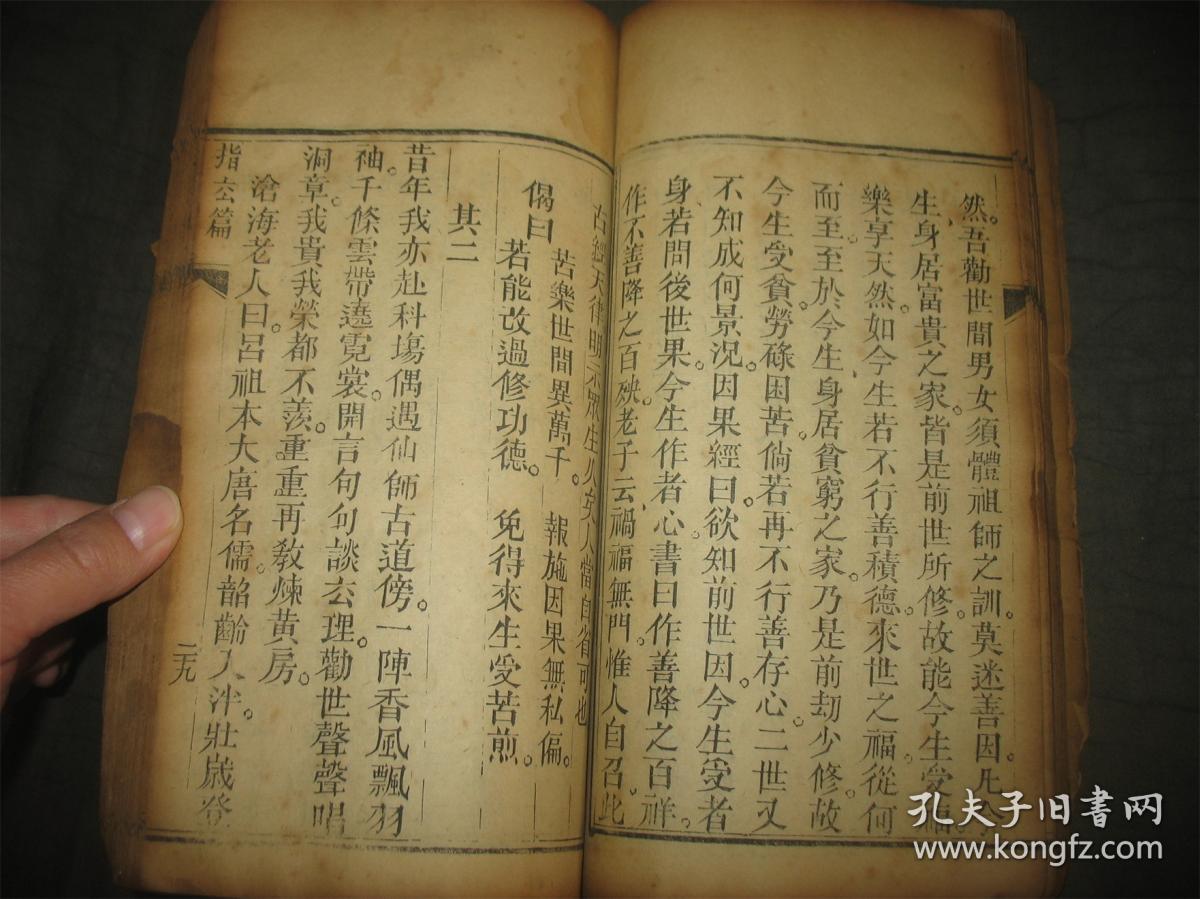 然。吾勸世間男女須體祖師之訓。莫迷善因。凡今
生身居富貴之家。皆是前世所修。故能今生受福。
樂享天然。如今生若不行善積德。來世之福從何
而至。至於今生身居貧窮之家。乃是前刼少修。故
今生受貧。勞碌困苦。倘若再不行善存心。二世又
不知成何景況。因果經曰。欲知前世因。今生受者
身。若問後世果。今生作者心。書曰作善降之百祥。
作不善降之百殃。老子云禍福無門。惟人自召。此
古經天律明示眾生。人當自省可也
偈曰 苦樂世間異萬千。 報施因果無私偏。
若能改過修功德。 免得來生受苦煎。
其二
昔年我亦赴科塲偶遇仙師古道傍。一陣香風飄羽
袖。千條雲帶遶霓裳。開言句句談玄理。勸世聲聲唱
洞章。我貴我榮都不羨。重重再教煉黃房。
滄海老人曰。呂祖本大唐名儒。韶齡入泮。壯歲登
指玄篇
二九
孔夫子旧書网
www.kongfz.com